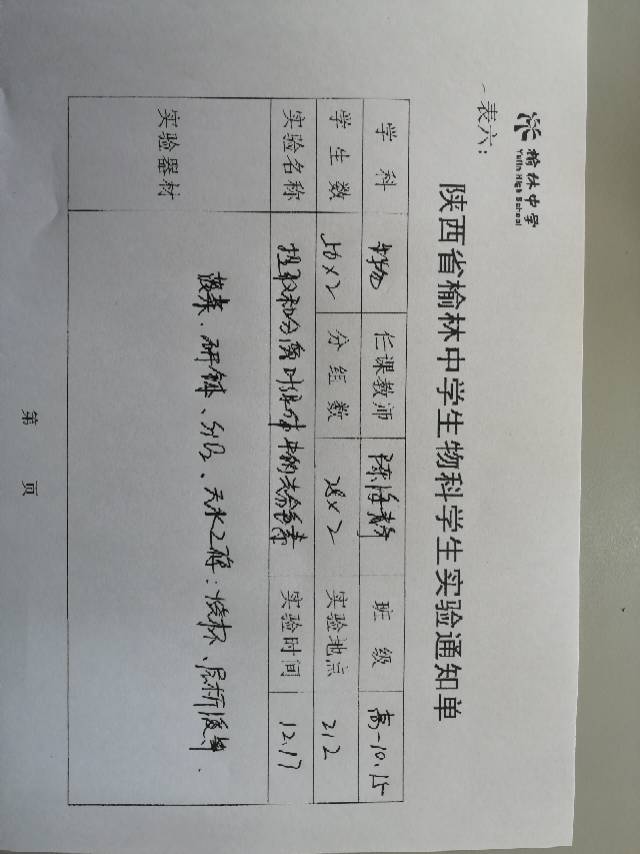 榆林中学
Yulin High School
表六：
陕西省榆林中学生物科学生实验通知单
学科 生物 任课教师 班级 高一10.15
学生数 56×2 分组数 28×2 实验地点 212
实验名称 提取和分离叶绿体中的光合色素 实验时间 12.17
实验器材 菠菜、研钵、无水乙醇：烧杯、层析液等.
第 页